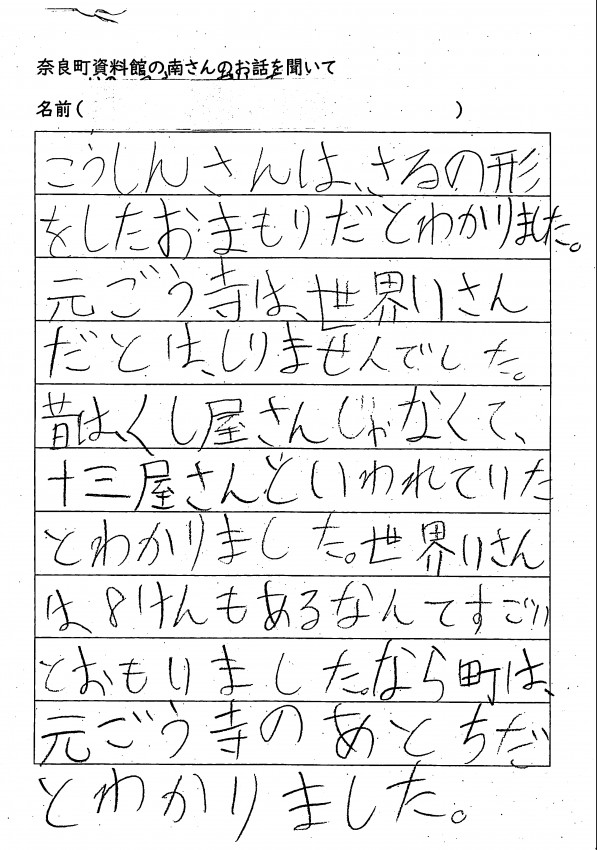 奈良町資料館の南さんのお話を聞いて
名前( )
こうしんさんは、さるの形
をしたおまもりだとわかりました。
元ごう寺は、世界いさん
だとは、しりませんでした。
昔は、くし屋さんじゃなくて、
十三屋さんといわれていた
とわかりました。世界いさん
は、8けんもあるなんてすごい
とおもいました。なら町は、
元ごう寺のあとちだ
とわかりました。